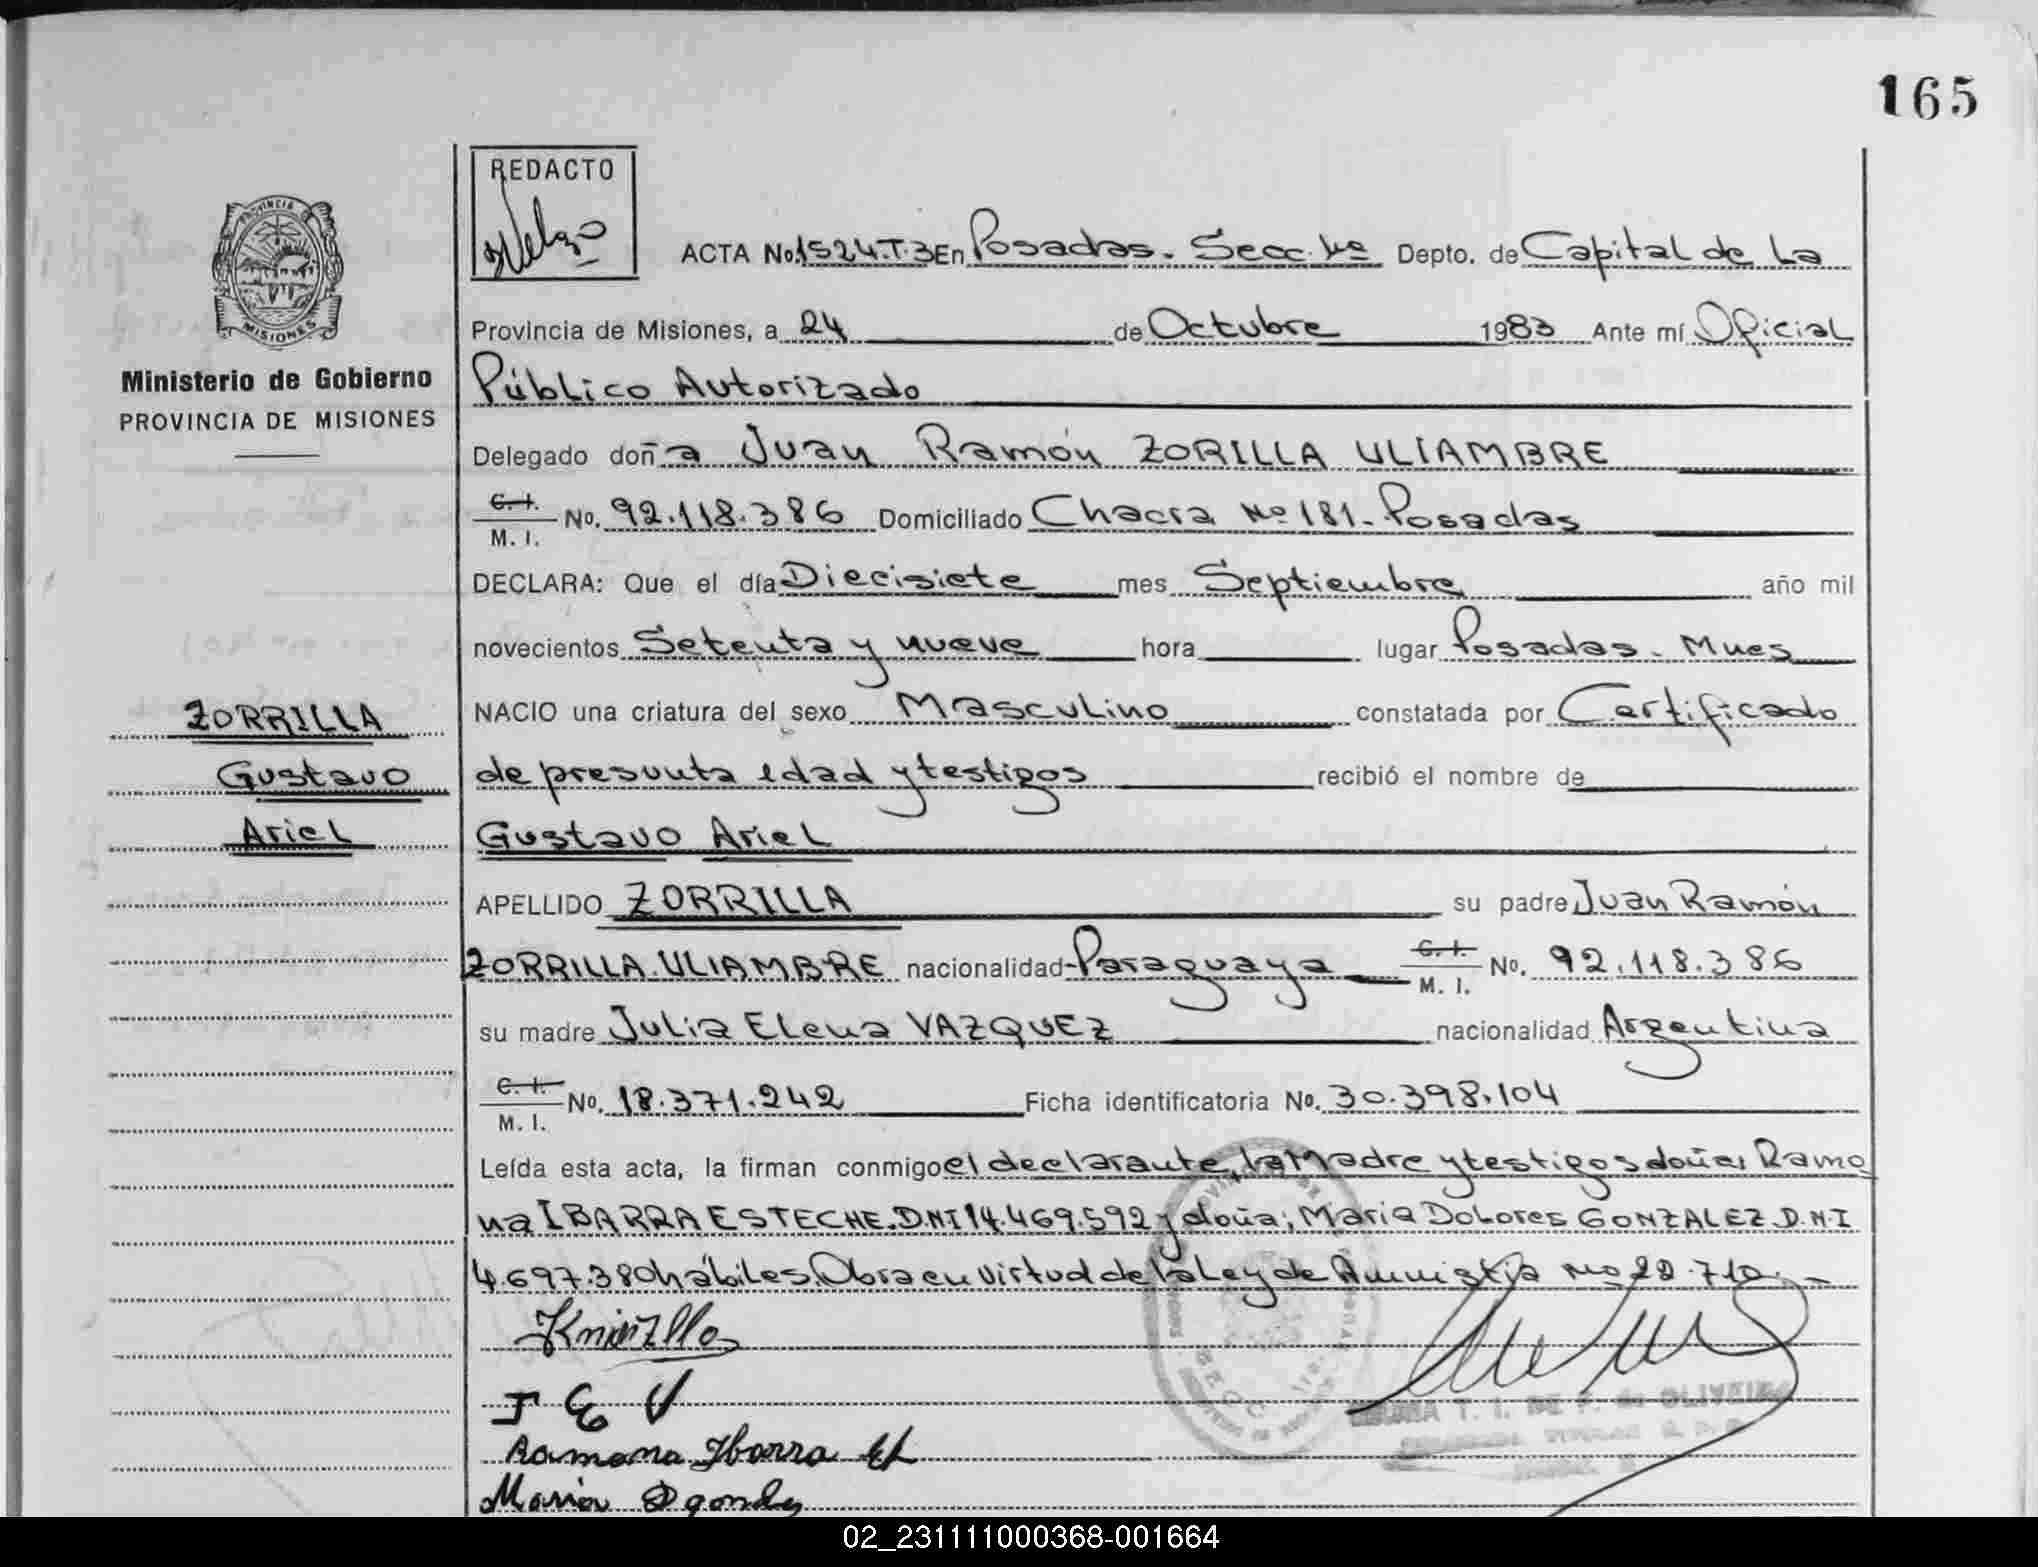 165
REDACTO
ACTA No. 1524.T.3 En Posadas. Secc. 1ª Depto. de Capital de La
PROVINCIA DE
MISIONES
Provincia de Misiones, a 24 de Octubre 1983 Ante mí Oficial
Ministerio de Gobierno
PROVINCIA DE MISIONES
Público Autorizado
Delegado doña Juan Ramón ZORILLA ULIAMBRE
C.I. M. I. No. 92.118.386 Domiciliado Chacra Nº 181 - Posadas
DECLARA: Que el día Diecisiete mes Septiembre año mil
novecientos Setenta y nueve hora lugar Posadas. Mnes
NACIO una criatura del sexo Masculino constatada por Certificado
ZORRILLA
Gustavo
Ariel
de presunta edad y testigos recibió el nombre de
Gustavo Ariel
APELLIDO ZORRILLA su padre Juan Ramón
ZORRILLA ULIAMBRE nacionalidad Paraguaya C.I. M. I. No. 92.118.386
su madre Julia Elena VAZQUEZ nacionalidad Argentina
C.I. M. I. No. 18.371.242 Ficha identificatoria No. 30.398.104
Leída esta acta, la firman conmigo el declarante, la Madre y testigos doña: Ramo
na IBARRA ESTECHE. D.N.I 14.469.592 y doña; Maria Dolores GONZALEZ D.N.I
4.697.380 hábiles. Obra en virtud de la Ley de Amnistia Nº 22.710.-
J E V
Ramona Ibarra
Maria D
T. I. DE F. de OLIVEIRA
02_231111000368-001664